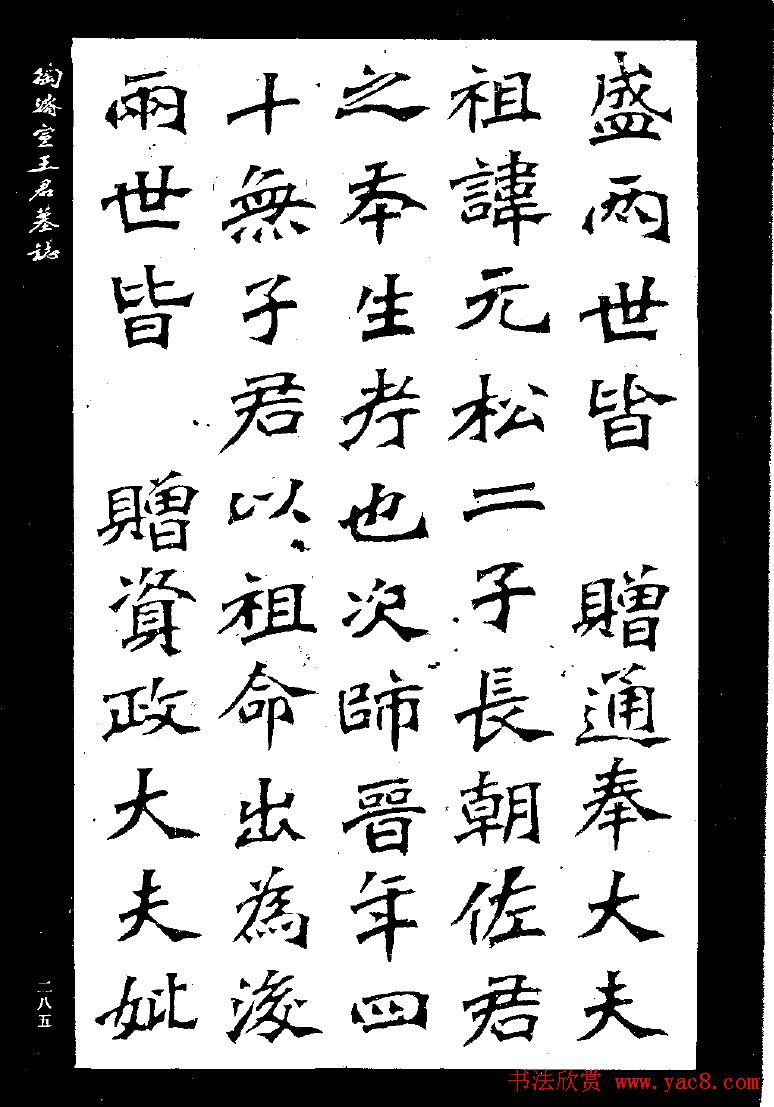 盛兩世皆 贈通奉大夫
祖諱元松二子長朝佐君
之本生考也次師晉年四
十無子君以祖命出為後
兩世皆 贈資政大夫妣
陶濬宣王君墓誌
二八五
书法欣赏 www.yac8.com